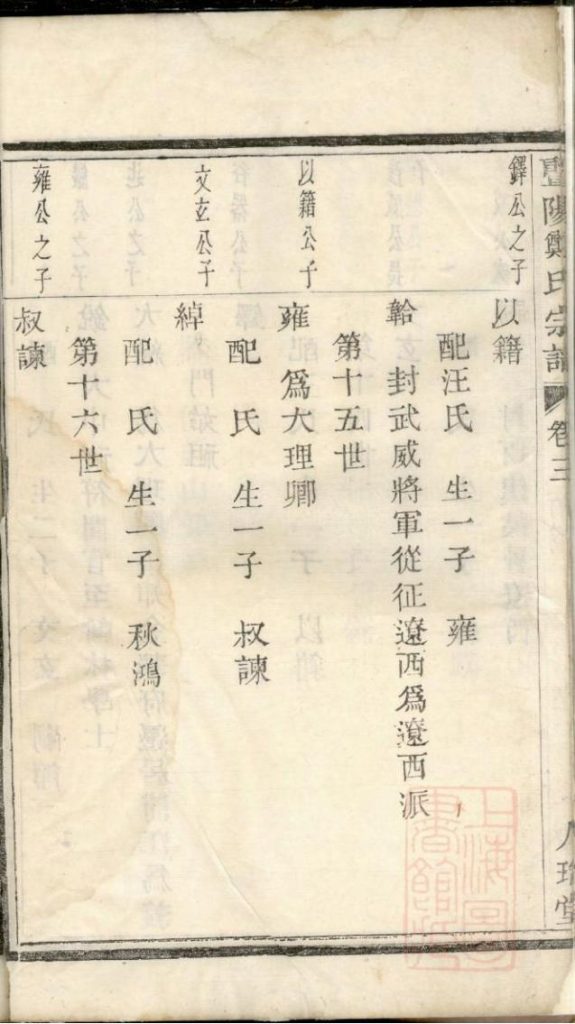 暨陽鄭氏宗譜 卷三 八
鐸公之子
以籍
配汪氏 生一子 雍
韐 封武威將軍從征遼西為遼西派
第十五世
以籍公子
雍為大理卿
配 氏 生一子 叔諫
文玄公子
綽
配 氏 生一子 秋鴻
第十六世
雍公之子
叔諫
上海圖書館